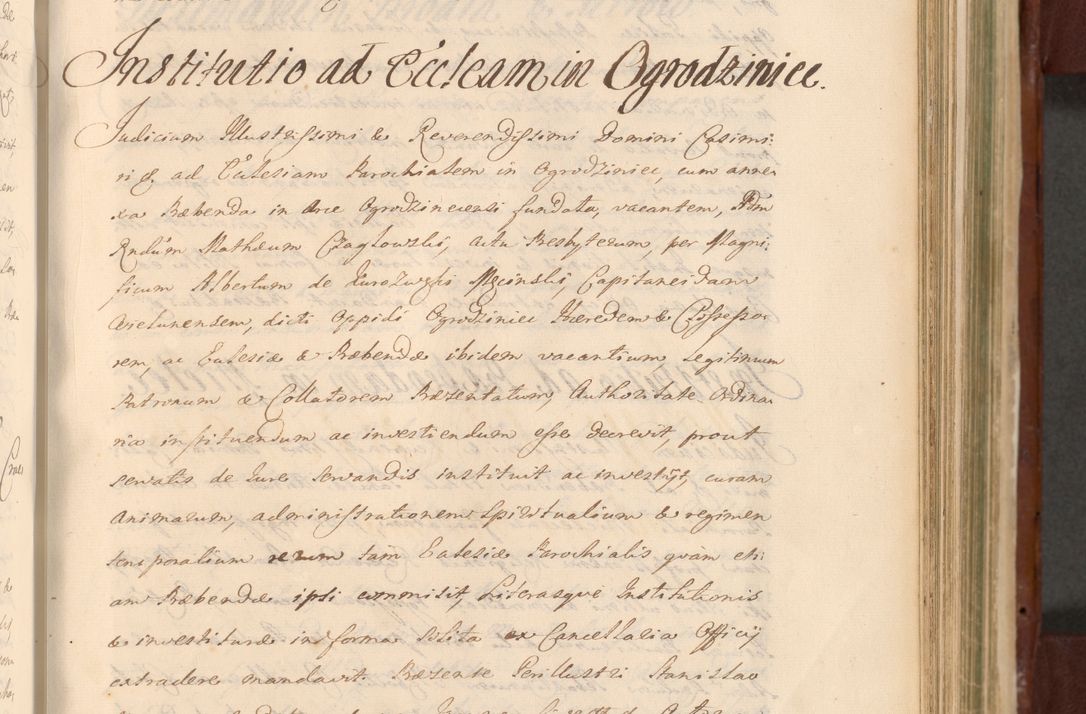 Institutio ad Eccleam in Ogrodziniec.
Judicium Illustrissimi & Reverendissimi Domini Casimi:
ri & ad Ecclesiam Parochialem in Ogrodziniec, cum anne-
xa Præbenda in Arce Ogrodzinecensi fundata, vacantem, Adm
Rndum Mathæum Czaglowski, actu Presbyterum, per Magni:
ficum Albertum de Kurozwęki Męcinski, Capitaneidam
Wielunensem, dicti Oppidi Ogrodziniec Hæredem & Possesso-
rem, ac Eclesiæ & Præbendæ ibidem vacantium Legitimum
Patronum & Collatorem Præsentatum, Authoritate Ordina-
ria instituendum ac investiendum esse decrevit, prout
servatis de Iure servandis instituit ac investijt, curam
Animarum, administrationem Spiritualium & regimen
temporalium rerum tam Eclesiæ Parochialis, quàm eti:
am Præbendæ ipsi commisit, Literasque Institutionis
& investituræ in forma solita ex Cancellaria Officij
extradere mandavit. Præsente Perillustri Stanislao